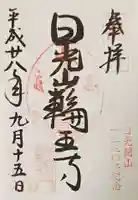 奉拝
日光山輪王寺
平成廿八年九月十五日
日光開山